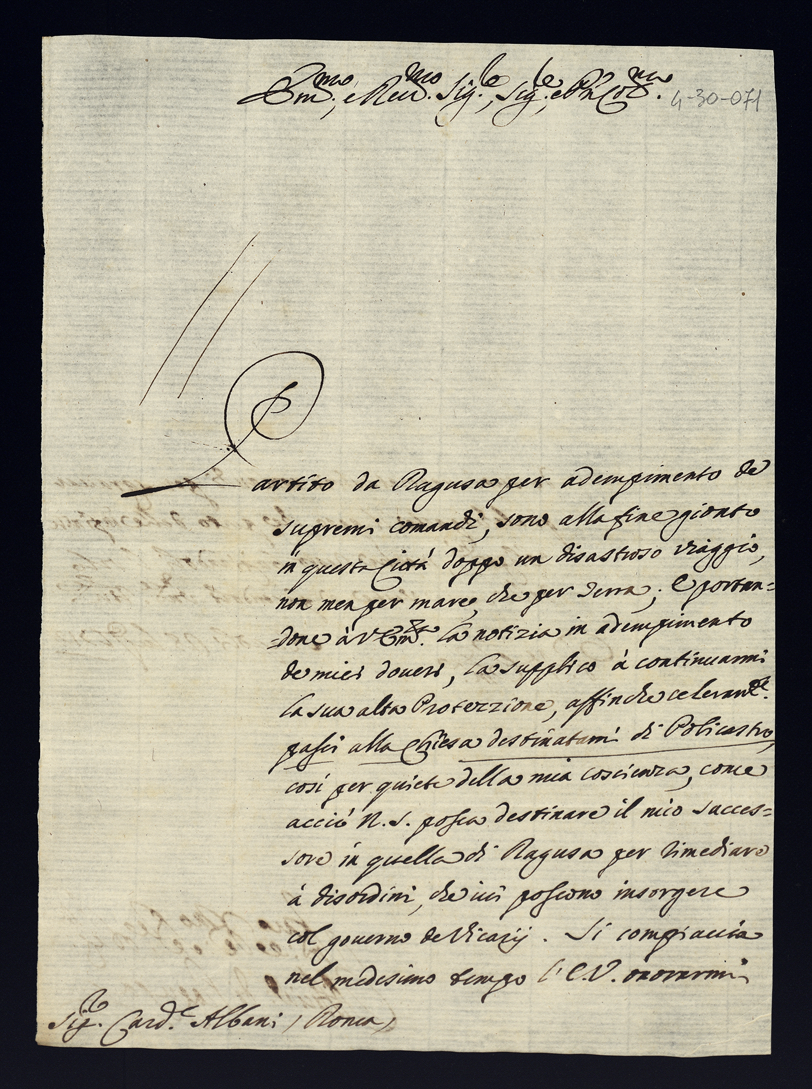 Em.mo, e Reu.mo Sig.re, Sig.re, e P.ñ Col.mo
4-30-071
Partito da Ragusa per adempimento de
supremi comandi, sono alla fine gionto
in questa Città doppo un disastroso viaggio,
non men per mare, che per terra; e portan=
done à V. Em.za la notizia in adempimento
de miei doveri, la supplico à continuarmi
la sua alta Protezzione, affinche celeram.te
passi alla Chiesa destinatami di Policastro,
così per quiete della mia coscienza, come
acciò N. S. possa destinare il mio succes=
sore in quella di Ragusa per rimediare
à disordini, che ivi possono insorgere
col governo de Vicarij. Si compiaccia
nel medesimo tempo l'E.V. onorarmi
Sig.re Card.e Albani / Roma /